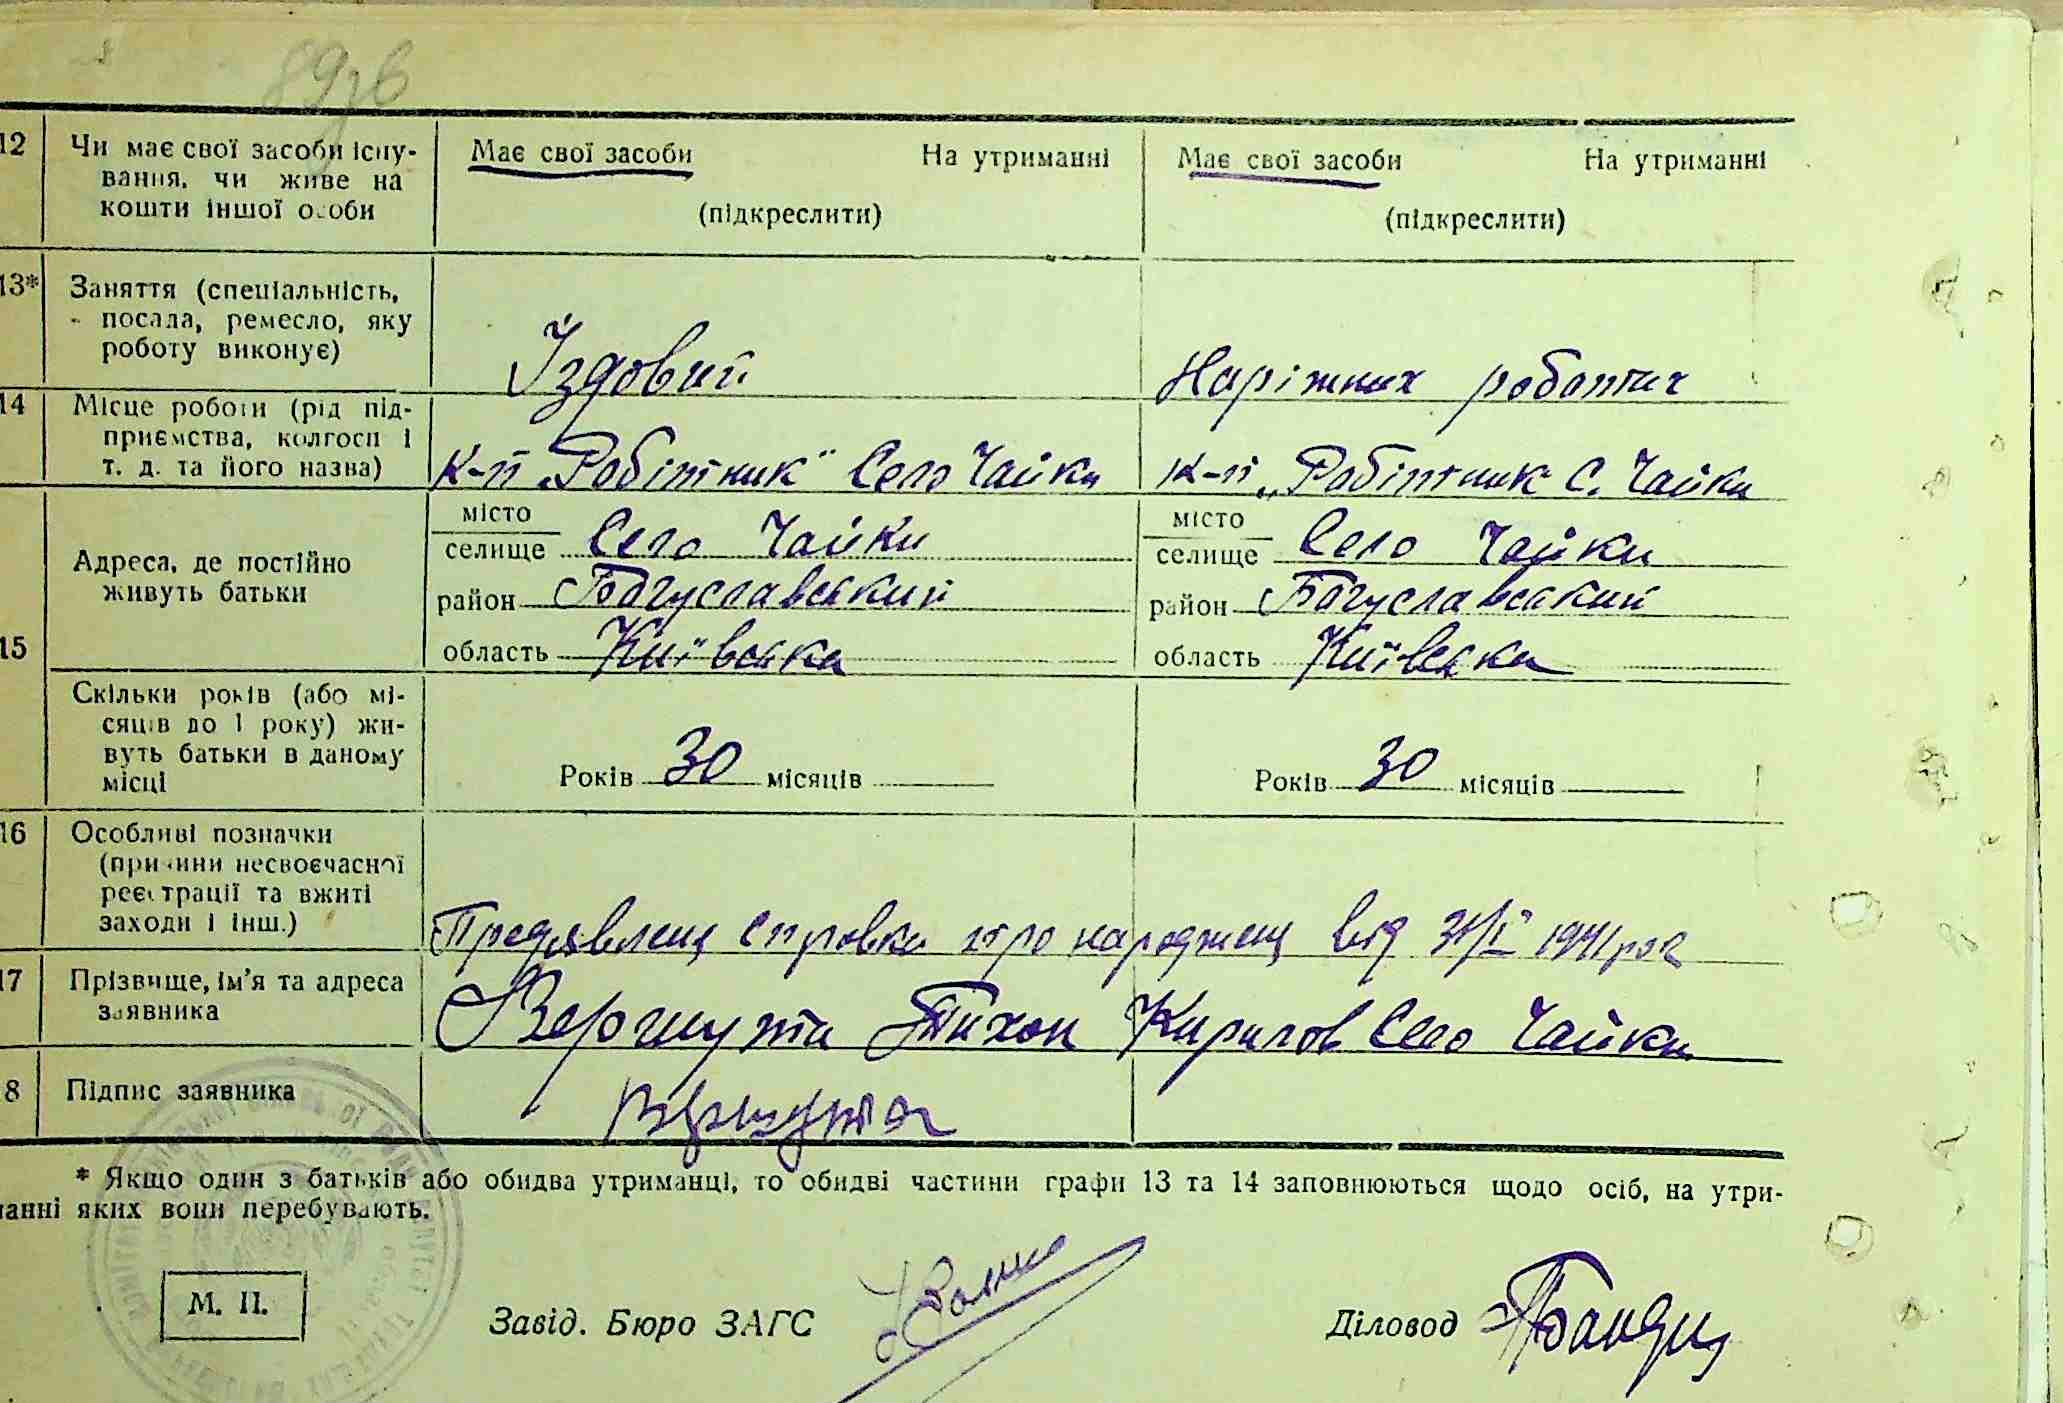 12 Чи має свої засоби існу- Має свої засоби На утриманні Має свої засоби На утриманні
вання, чи живе на
кошти іншої особи (підкреслити) (підкреслити)
13* Заняття (спеціальність,
посада, ремесло, яку
роботу виконує) Їздовий На ріжних роботах
14 Місце роботи (рід під-
приємства, колгосп і
т. д. та його назва) к-п „Робітник" Село Чайки к-п „Робітник С. Чайки
15 Адреса, де постійно
живуть батьки
місто
селище Село Чайки
район Богуславський
область Київська
місто
селище Село Чайки
район Богуславський
область Київська
Скільки років (або мі-
сяців до 1 року) жи-
вуть батьки в даному
місці Років 30 місяців Років 30 місяців
16 Особливі позначки
(причини несвоєчасної
реєстрації та вжиті
заходи і інш.) Предявлена Справка про народжен від 31/I 1941
17 Прізвище, ім'я та адреса
заявника Вергута Тихон Кирилов Село Чайки
8 Підпис заявника
* Якщо один з батьків або обидва утриманці, то обидві частини графи 13 та 14 заповнюються щодо осіб, на утри-
манні яких вони перебувають.
М. П. Завід. Бюро ЗАГС Діловод